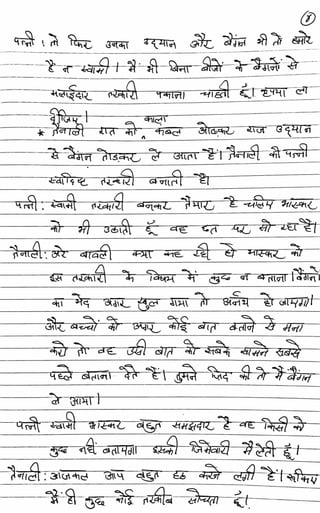 ①
पत्नी : तो फिर उनका उद्यान और बैंगन भी तो हमारे
हैं न स्वामी। मैं भी बिना बीजों के बैंगनों से
मसाईदार तरकारी पकाना चाहती हूँ। कृपया ला
दीजिए।
* तेनाली रात को काला कंबल ओढकर राज उद्यान
से बैंगन तोडकर ले आता है। तेनाली की पत्नी
स्वादिष्ट तरकारी बनाती है।
पत्नी : स्वामी तरकारी बनकर तैयार है चलिए भास्कर
को भी उठाती हूँ वह छत पर सो रहा है।
तेनाली : अरे बावली क्या कह रही हो भास्कर को
इस तरकारी के विषय में कुछ न बताना। बैंगनों
का भेद अगर खुल गया तो अनर्थ हो जायगा।
और बच्चों को अगर कोई बात बताने से मना
करो तो वह उसी बात को सबके सामने सबसे
पहले बता देते हैं। तुमने जिद की तो मैं बैंगन
ले आया।
पत्नी स्वामी भास्कर बहुत समझदार है वह किसी को
कुछ नहीं बतायगा इसकी जिमेवारी मैं लेती हूँ।
तेनाली : आजकल आप बहुत हठ करने लगी है। रूकिए
मैं ही कुछ कोई तरकीब सोचता हूँ।